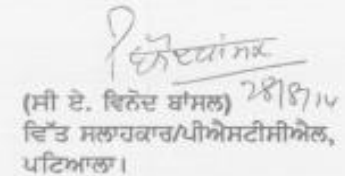 28/8/14
(ਸੀ ਏ. ਵਿਨੋਦ ਬਾਂਸਲ)
ਵਿੱਤ ਸਲਾਹਕਾਰ/ਪੀਐਸਟੀਸੀਐਲ,
ਪਟਿਆਲਾ।